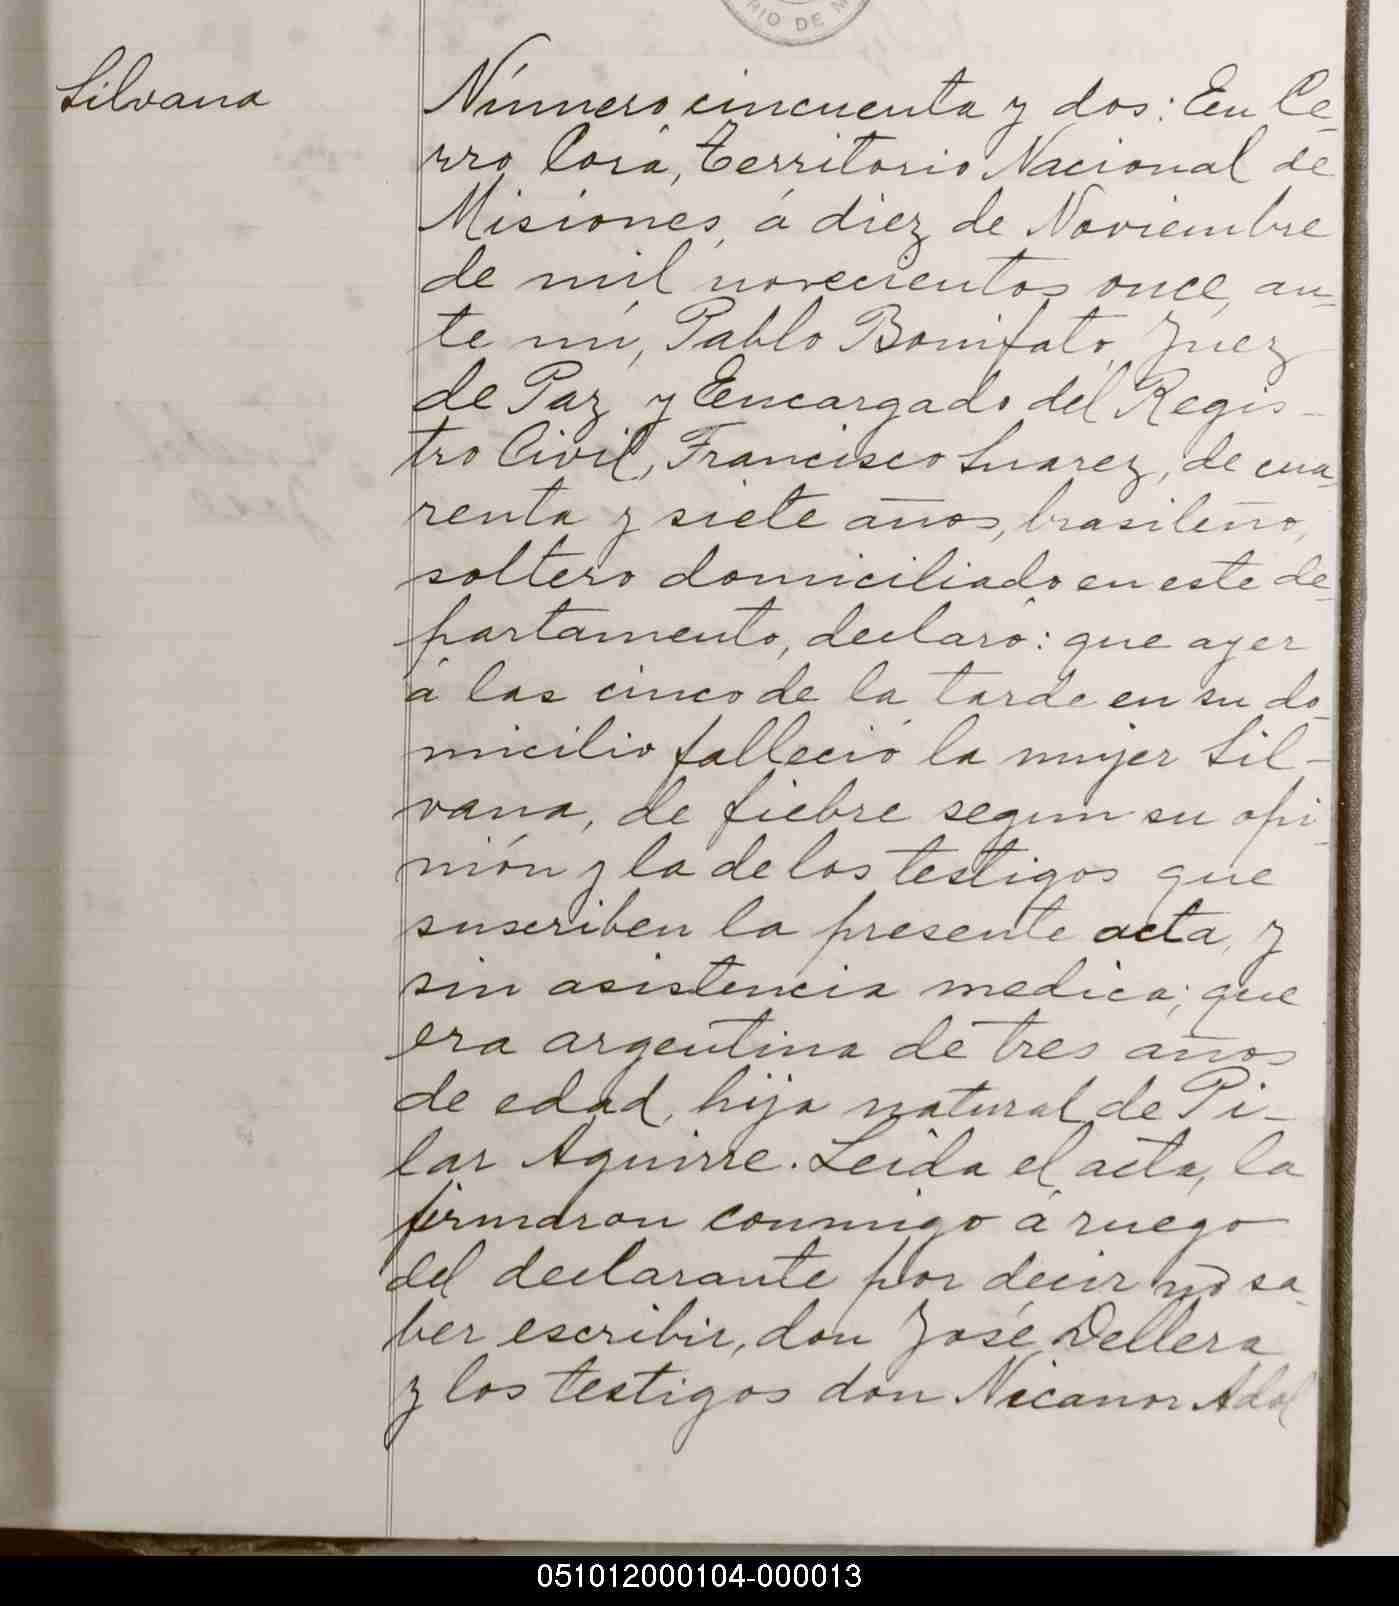 RIO DE M
Silvana
Número cincuenta y dos: En Ce-
rro Corá, Territorio Nacional de
Misiones, á diez de Noviembre
de mil novecientos once, an-
te mí, Pablo Bonifato, Juez
de Paz y Encargado del Regis-
tro Civil, Francisco Suarez, de cua-
renta y siete años, brasileño,
soltero domiciliado en este de-
partamento, declaró: que ayer
á las cinco de la tarde en su do-
micilio falleció la mujer Sil-
vana, de fiebre segun su opi-
nión y la de los testigos que
suscriben la presente acta, y
sin asistencia medica; que
era argentina de tres años
de edad, hija natural de Pi-
lar Aguirre. Leida el acta, la
firmaron conmigo á ruego
del declarante por decir no sa-
ber escribir, don José Dellera
y los testigos don Nicanor Adol
051012000104-000013